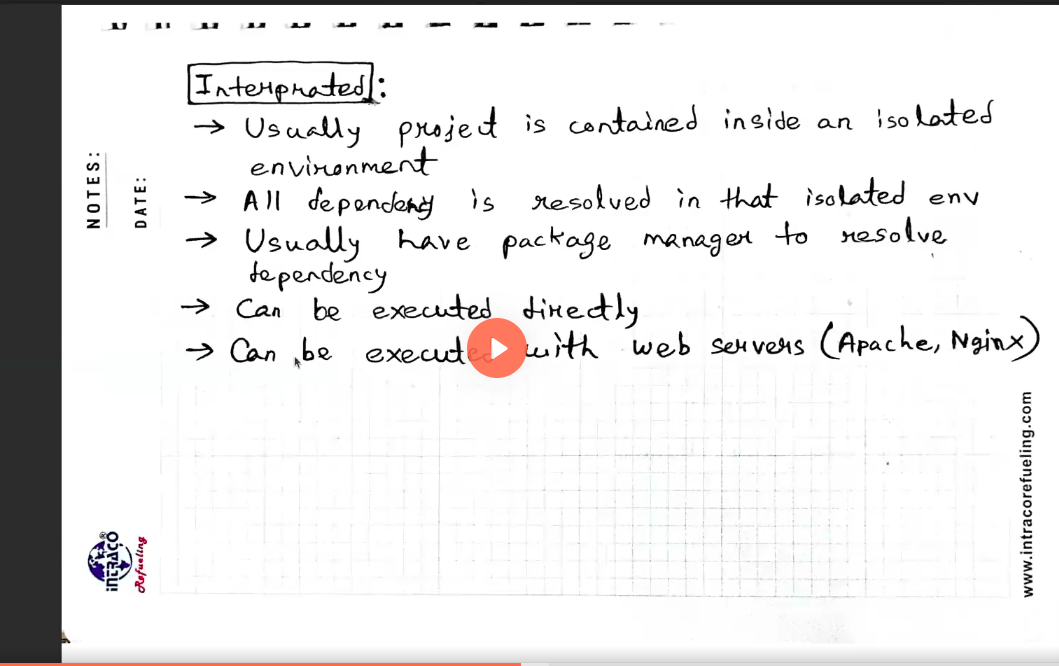 Interprated:
→ Usually project is contained inside an isolated
environment
→ All dependency is resolved in that isolated env
→ Usually have package manager to resolve
dependency
→ Can be executed directly
→ Can be executed with web servers (Apache, Nginx)
NOTES:
DATE:
INTRACO®
Refueling
www.intracorefueling.com